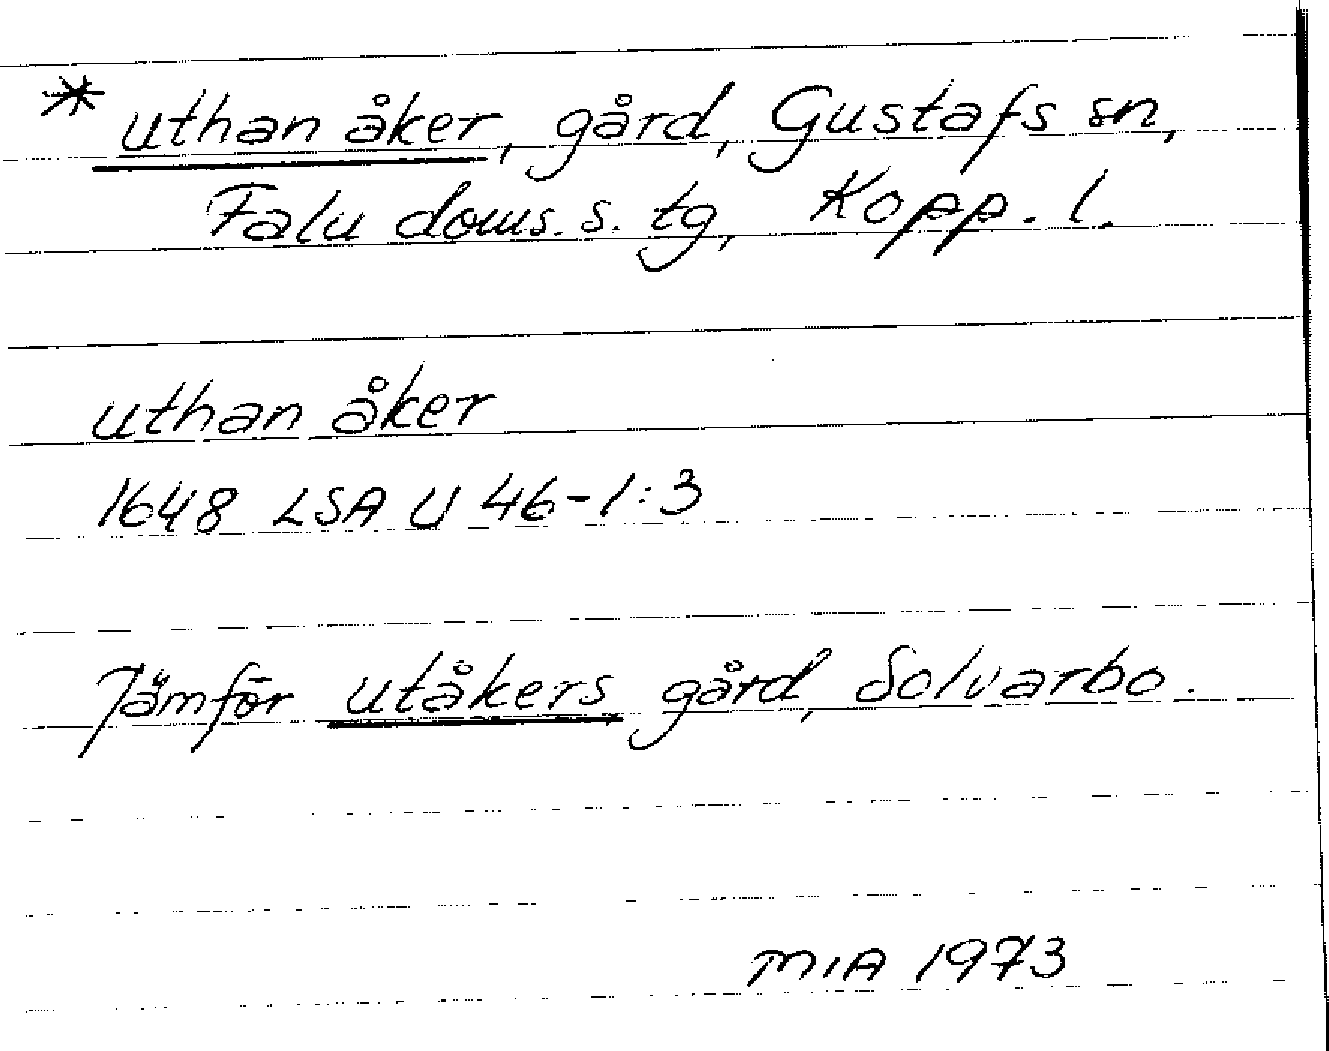 * uthan åker, gård, Gustafs sn,
Falu doms. s. tg, Kopp. l.
uthan åker
1648 LSA U 46-1:3
Jämför utåkers gård, Solvarbo.
MIA 1973